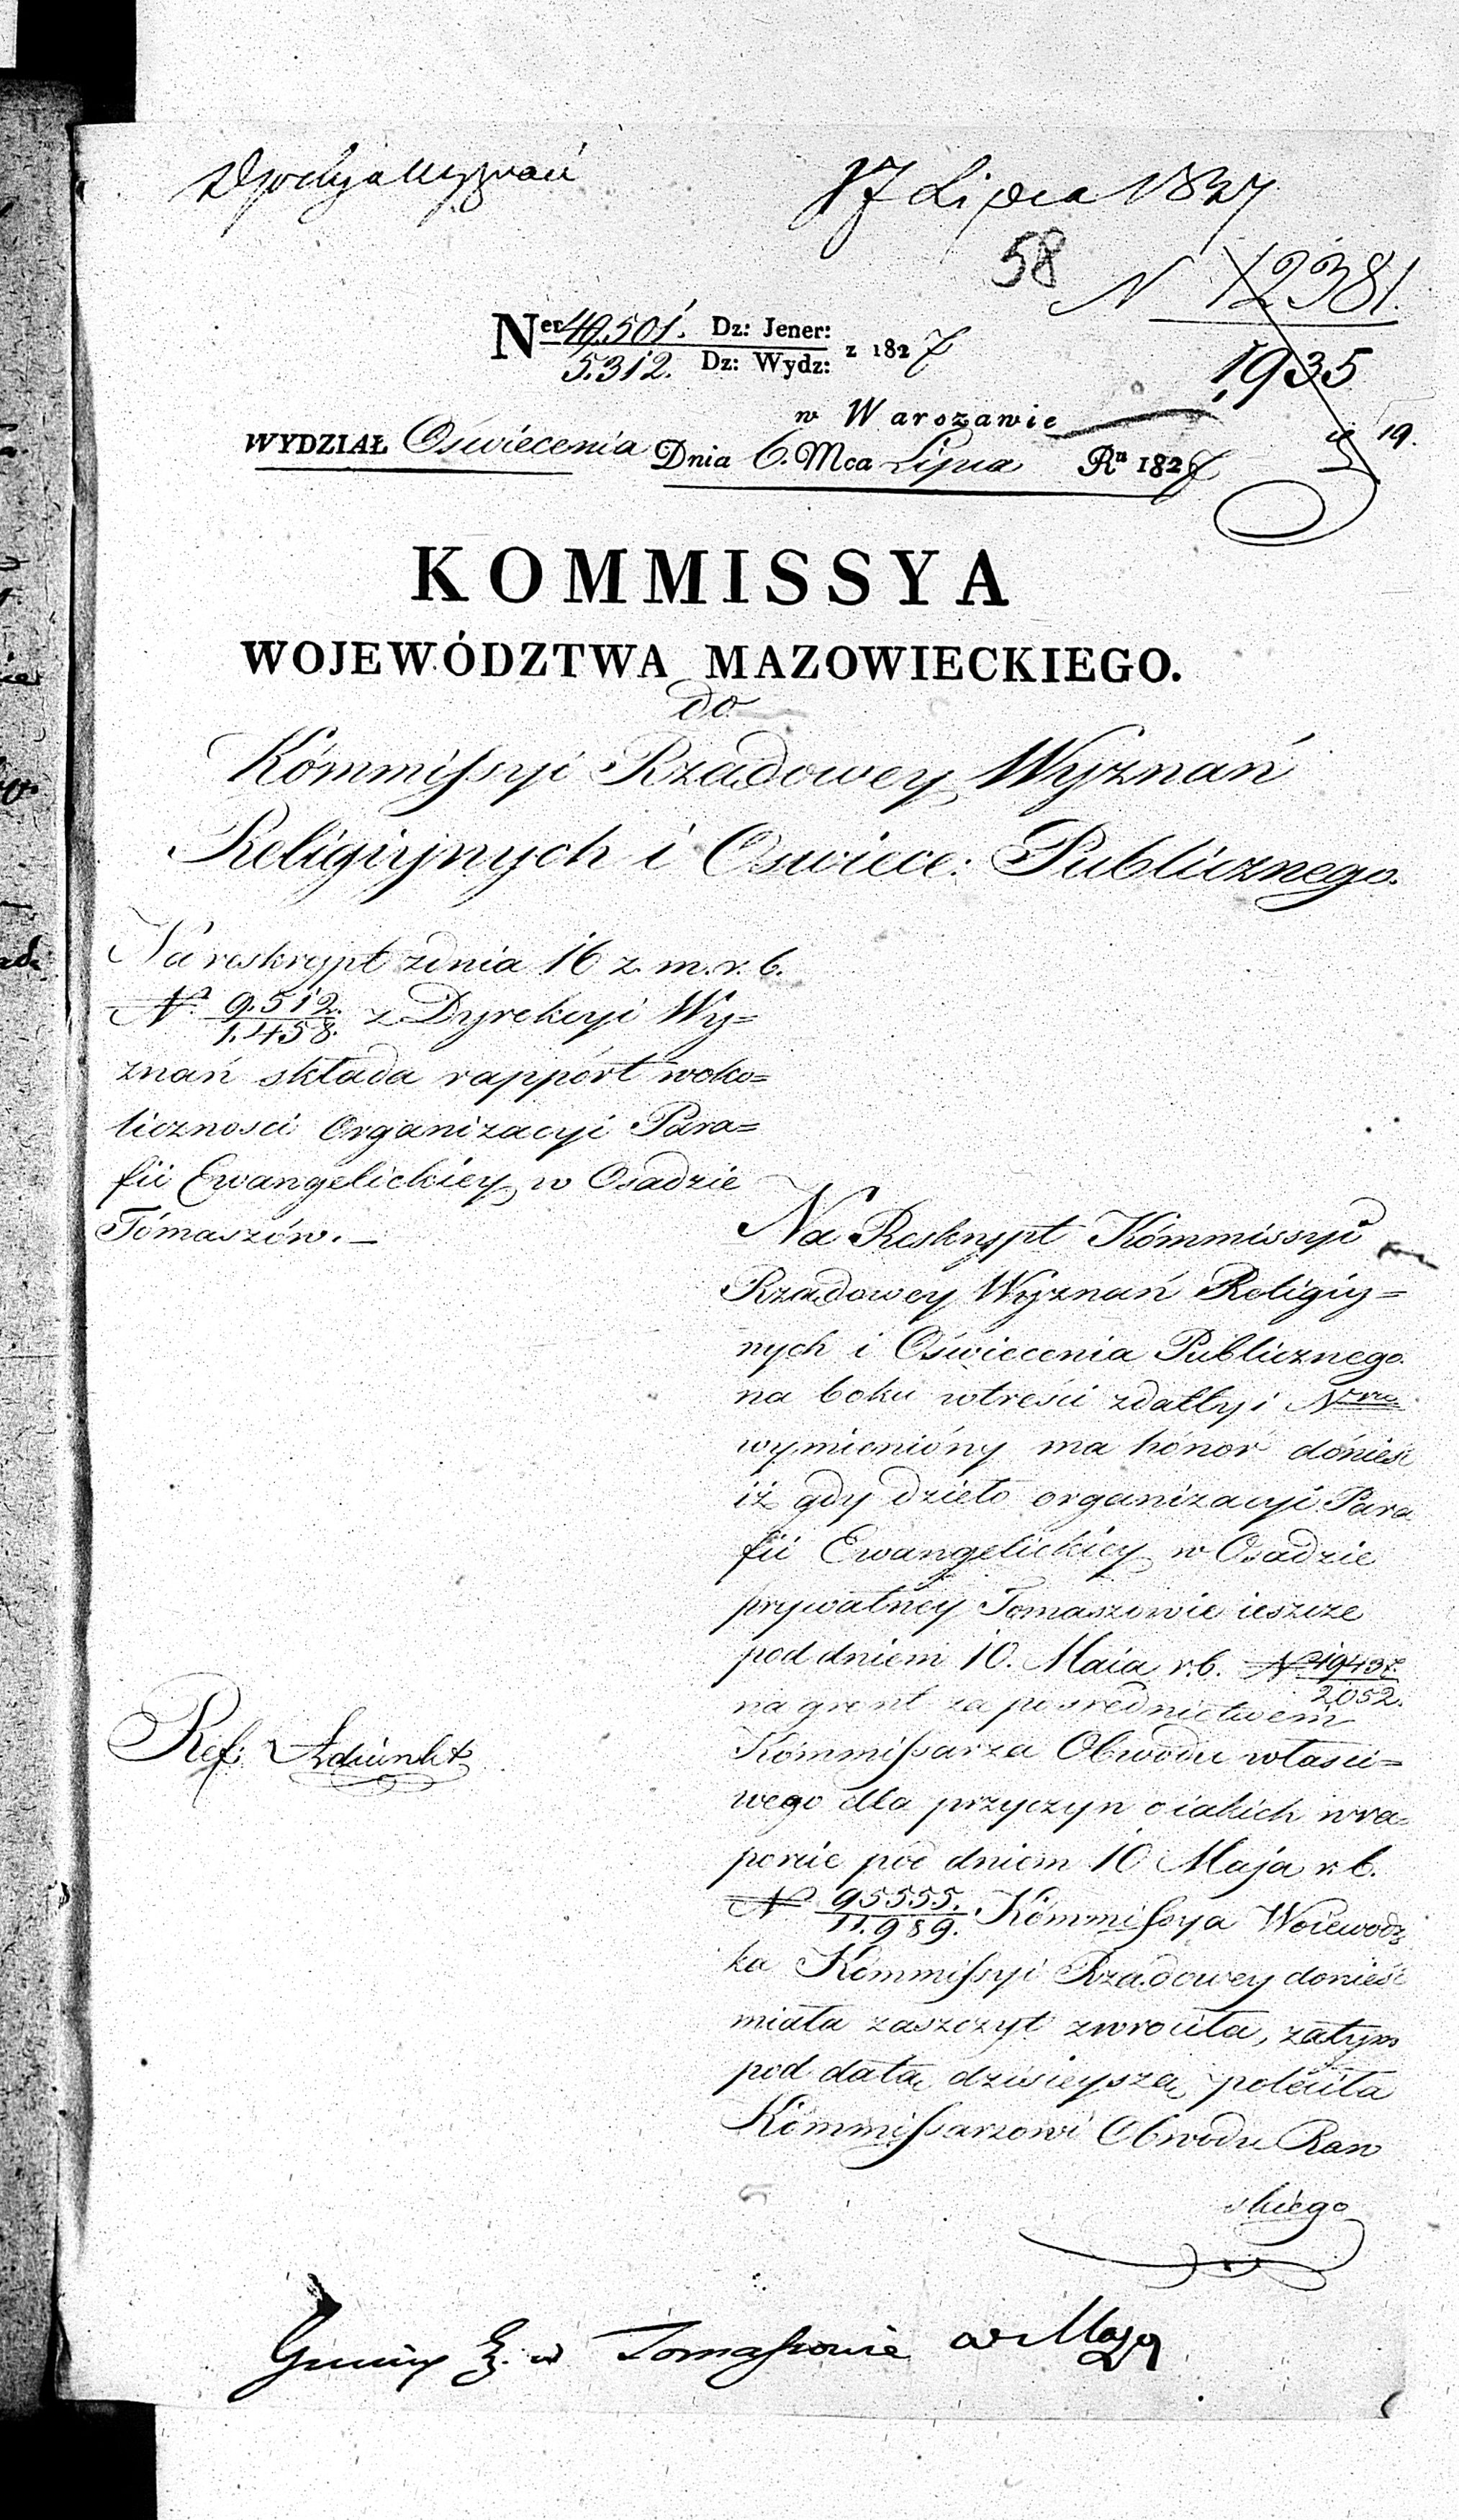 17 Lipca 1827
58
N 12381.
1935
Ner 49.501. Dz: Jener:
5.312. Dz: Wydz: z 1827
w Warszawie
19.
WYDZIAŁ Oswiecenia Dnia 6. Mca Lipca Ru 1827
KOMMISSYA
WOJEWÓDZTWA MAZOWIECKIEGO.
do
Kómmissyi Rządowey Wyznań
Religiynych i Oswiece: Publicznego.
Na reskrypt zdnia 16 z. m. r. b.
N 9.512. z Dyrekcyi Wy=
1.458.
znań składa rapport woko=
licznosci Organizacyi Para=
fii Ewangelickiey w Osadzie
Tómaszów. —
Ref: Adiunkt
Na Reskrypt Kómmissyi
Rządowey Wyznań Religiy=
nych i Oświecenia Publicznego
na boku wtreści zdatty i Nru
wymienióny ma hónor dónieść
iż gdy dzieło organizacyi Para
fii Ewangelickiey w Osadzie
prywatney Tomaszowie ieszcze
pod dniem 10. Maia r. b. N 19437.
2052.
na grunt za pośrednictwem
Kómmissarza Obwodu właści=
wego dla przyczyn o iakich wra=
porcie pod dniem 10 Maja r. b.
N 95555. Kómmissya Woiewodz
11.989.
ka Kómmissyi Rządowey donieść
miała zaszczyt zwróciła, zatym
pod datą dzisieyszą poleciła
Kómmissarzowi Obwodu Raw
skiego
w Tomaszowie Maz